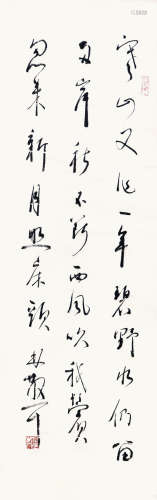 寒山又一年碧野水仍留
两岸秋不断西风吹我鬓
忽来新月照床头 林散耳